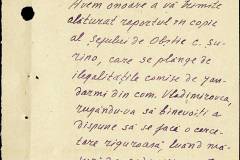 Avem onoare a vă trimite
alaturat raportul în copie
al Șefului de Obștie C. Su-
rino, care se plange de
ilegalitățile comise de jan-
darmi din com. Vladimirovca,
rugându-va să binevoiți a
dispune să se facă o cerce-
tare riguroasă, luând mă-